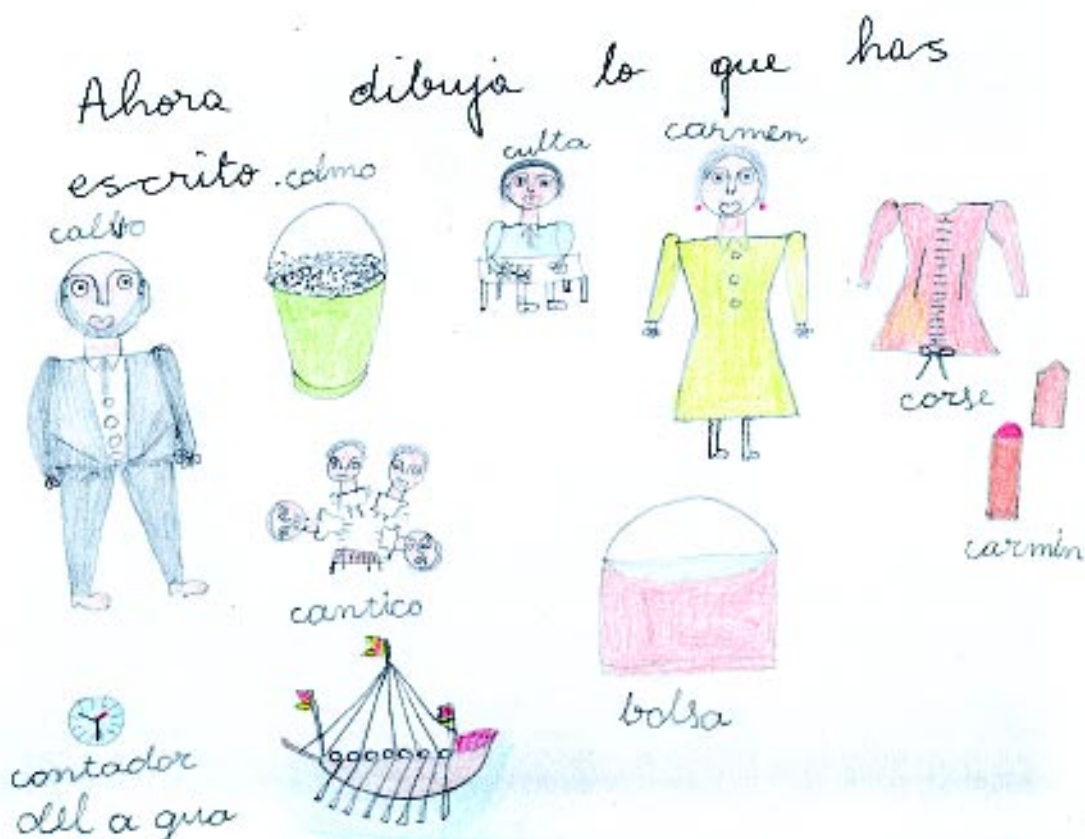 Ahora dibuja lo que has
escrito.
colmo
culta
carmen
calvo
corse
carmín
cantico
bolsa
contador
del a gua